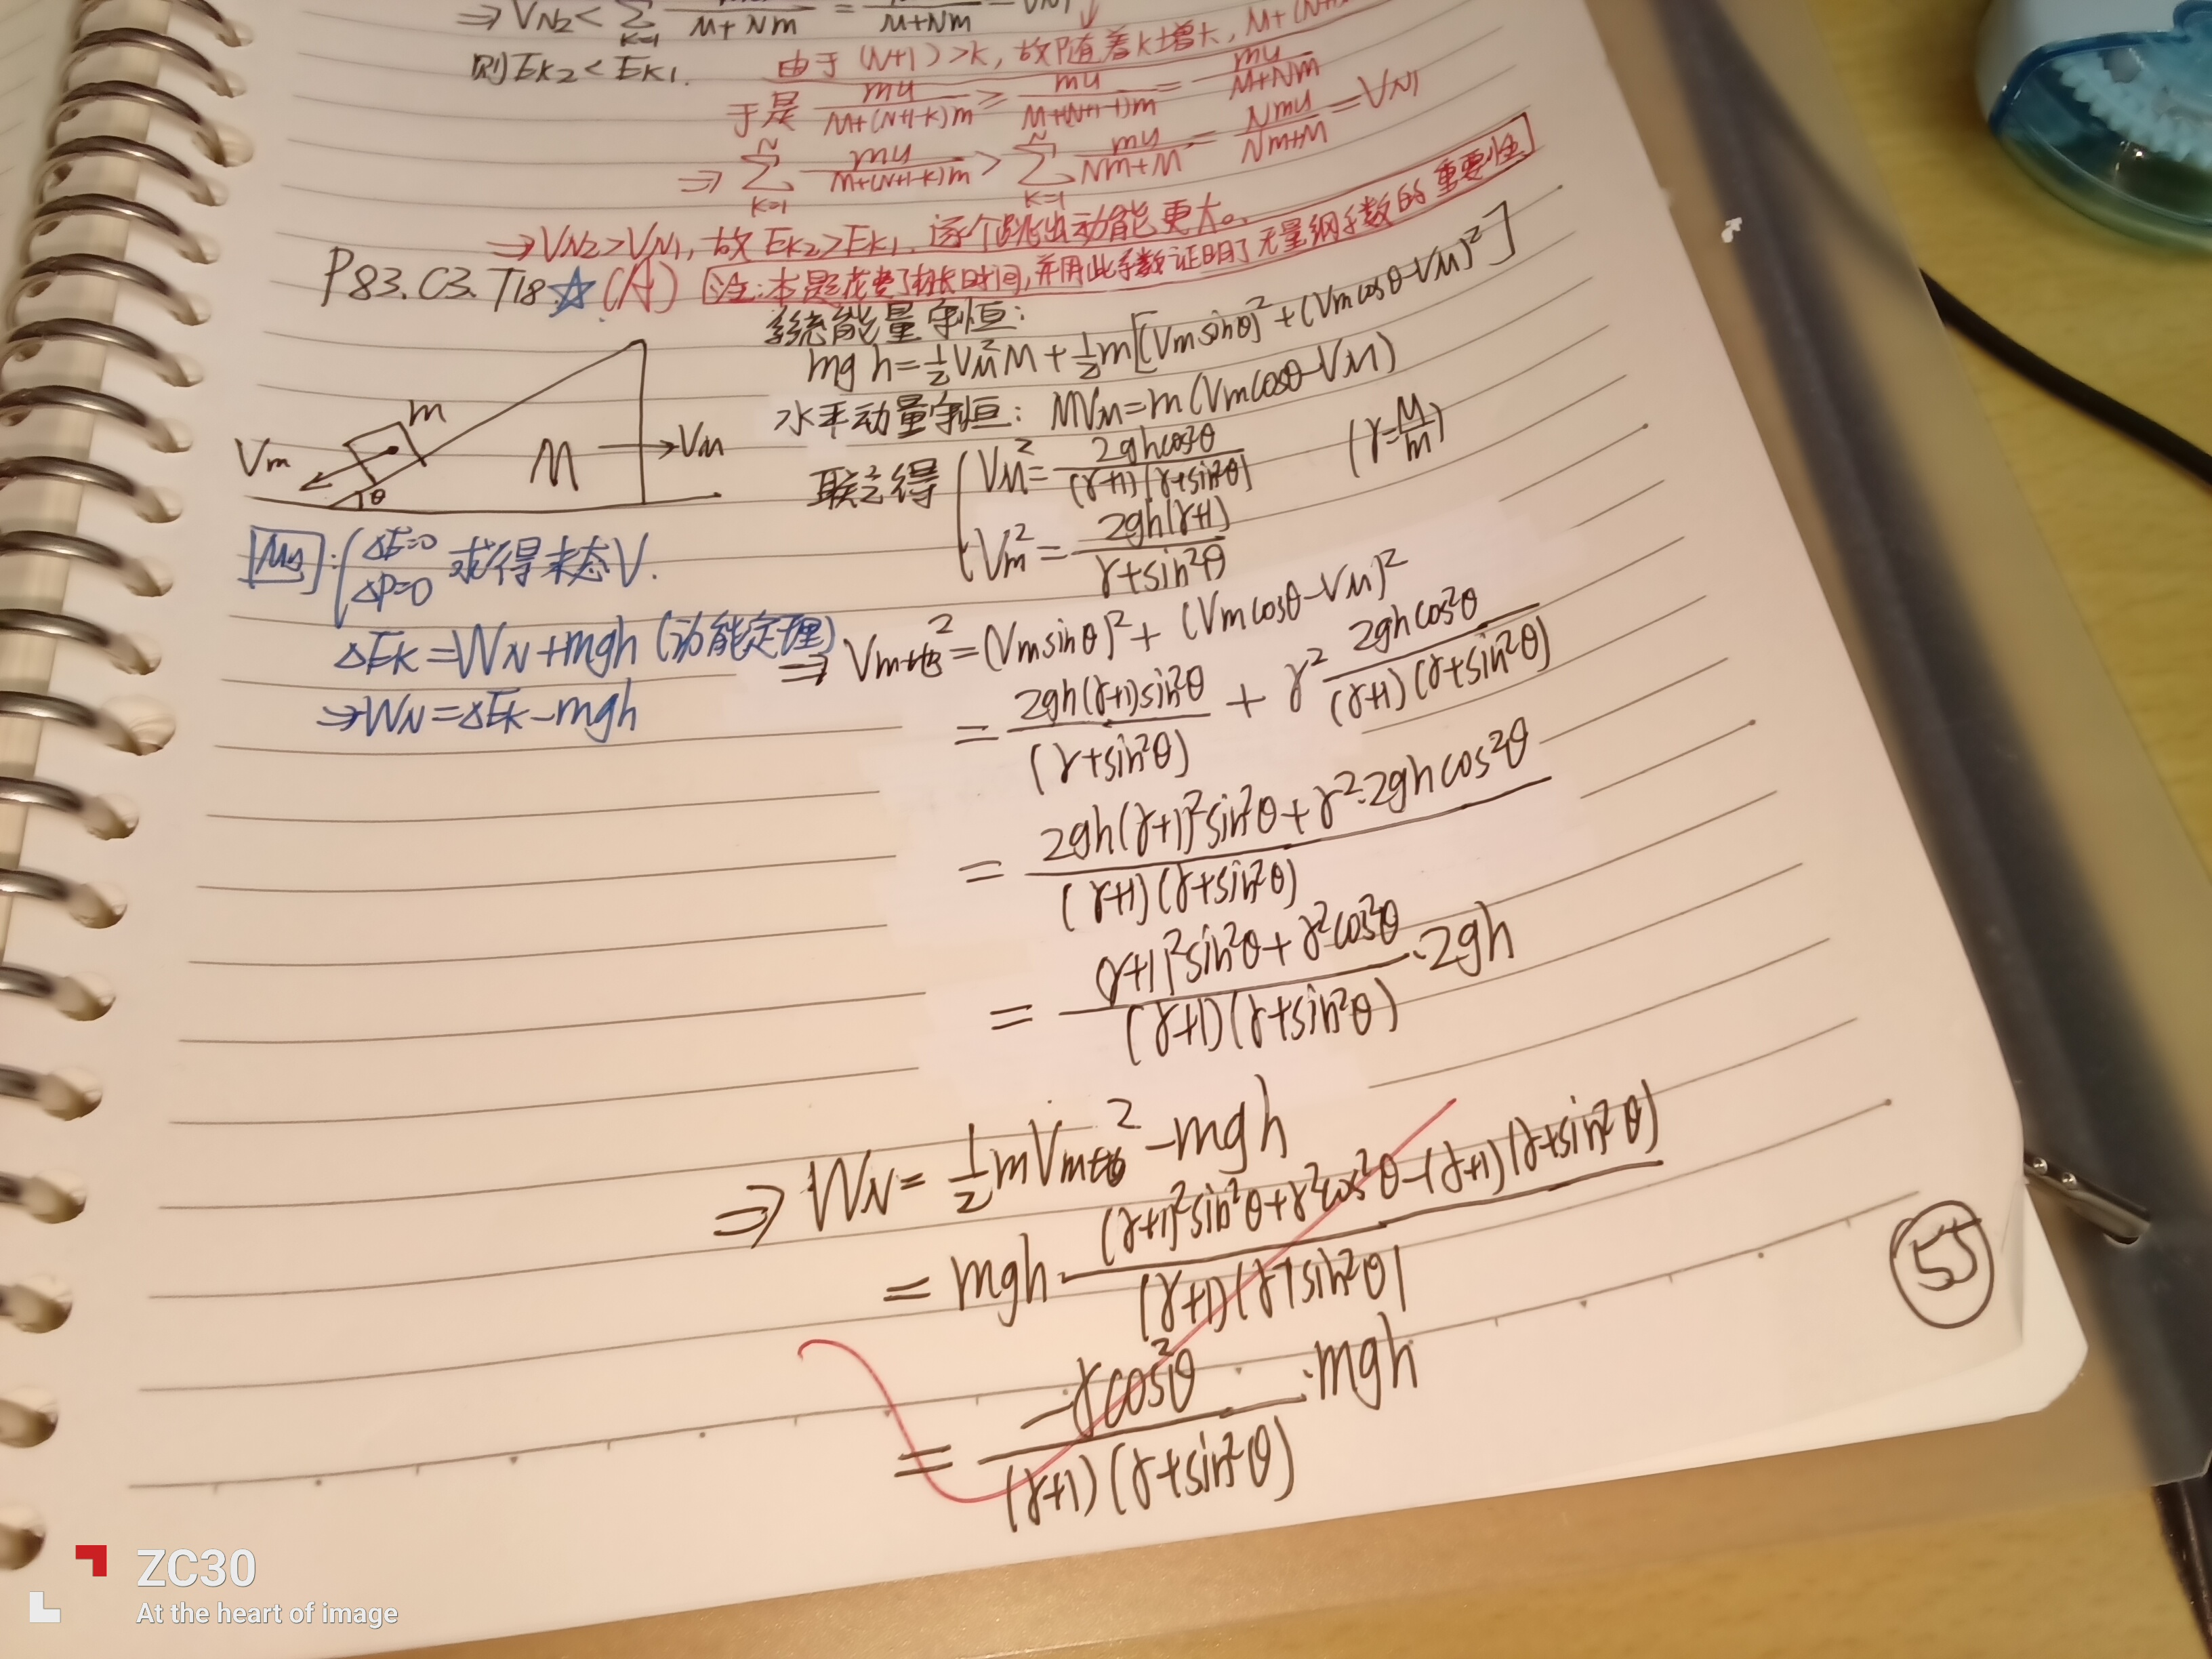 ⇒ VN2 < Σ K=1 M+Nm = M+Nm = VN1
则 EK2 < EK1.
由于 (N+1) > k, 故P随着k增长, M+(N+1
于是 mu/(M+(N+1-k)m) ≥ mu/(M+(N+1-1)m) = mu/(M+Nm)
⇒ Σ(K=1→N) mu/(M+(N+1-k)m) > Σ(K=1→N) mu/(Nm+M) = Nmu/(Nm+M) = VN1
⇒ VN2 > VN1, 故 EK2 > EK1. 逐个跳出动能更大。
P83.C3.T18 ☆ (A) [注:本题花费了较长时间,并用此手数证明了无量纲手数的重要性]
系统能量守恒:
mgh = ½VM²M + ½m[(Vm sinθ)² + (Vm cosθ - VM)²]
水平动量守恒: MVM = m(Vm cosθ - VM)
联立得 { VM² = 2ghcos²θ/((γ+1)(γ+sin²θ)) (γ = M/m)
Vm² = 2gh(γ+1)/(γ+sin²θ)
m
M
Vm
VM
θ
: { ΔE=0
ΔP=0 求得末态V.
ΔEK = WN + mgh (动能定理)
⇒ WN = ΔEK - mgh
⇒ Vm地² = (Vm sinθ)² + (Vm cosθ - VM)²
= 2gh(γ+1)sin²θ/(γ+sin²θ) + γ² 2ghcos²θ/((γ+1)(γ+sin²θ))
= (2gh(γ+1)²sin²θ + γ²·2ghcos²θ)/((γ+1)(γ+sin²θ))
= ((γ+1)²sin²θ + γ²cos²θ)/((γ+1)(γ+sin²θ)) · 2gh
⇒ WN = ½mVm地² - mgh
= mgh · ((γ+1)²sin²θ + γ²cos²θ - (γ+1)(γ+sin²θ))/((γ+1)(γ+sin²θ))
= -γcos²θ/((γ+1)(γ+sin²θ)) · mgh
55
ZC30
At the heart of image